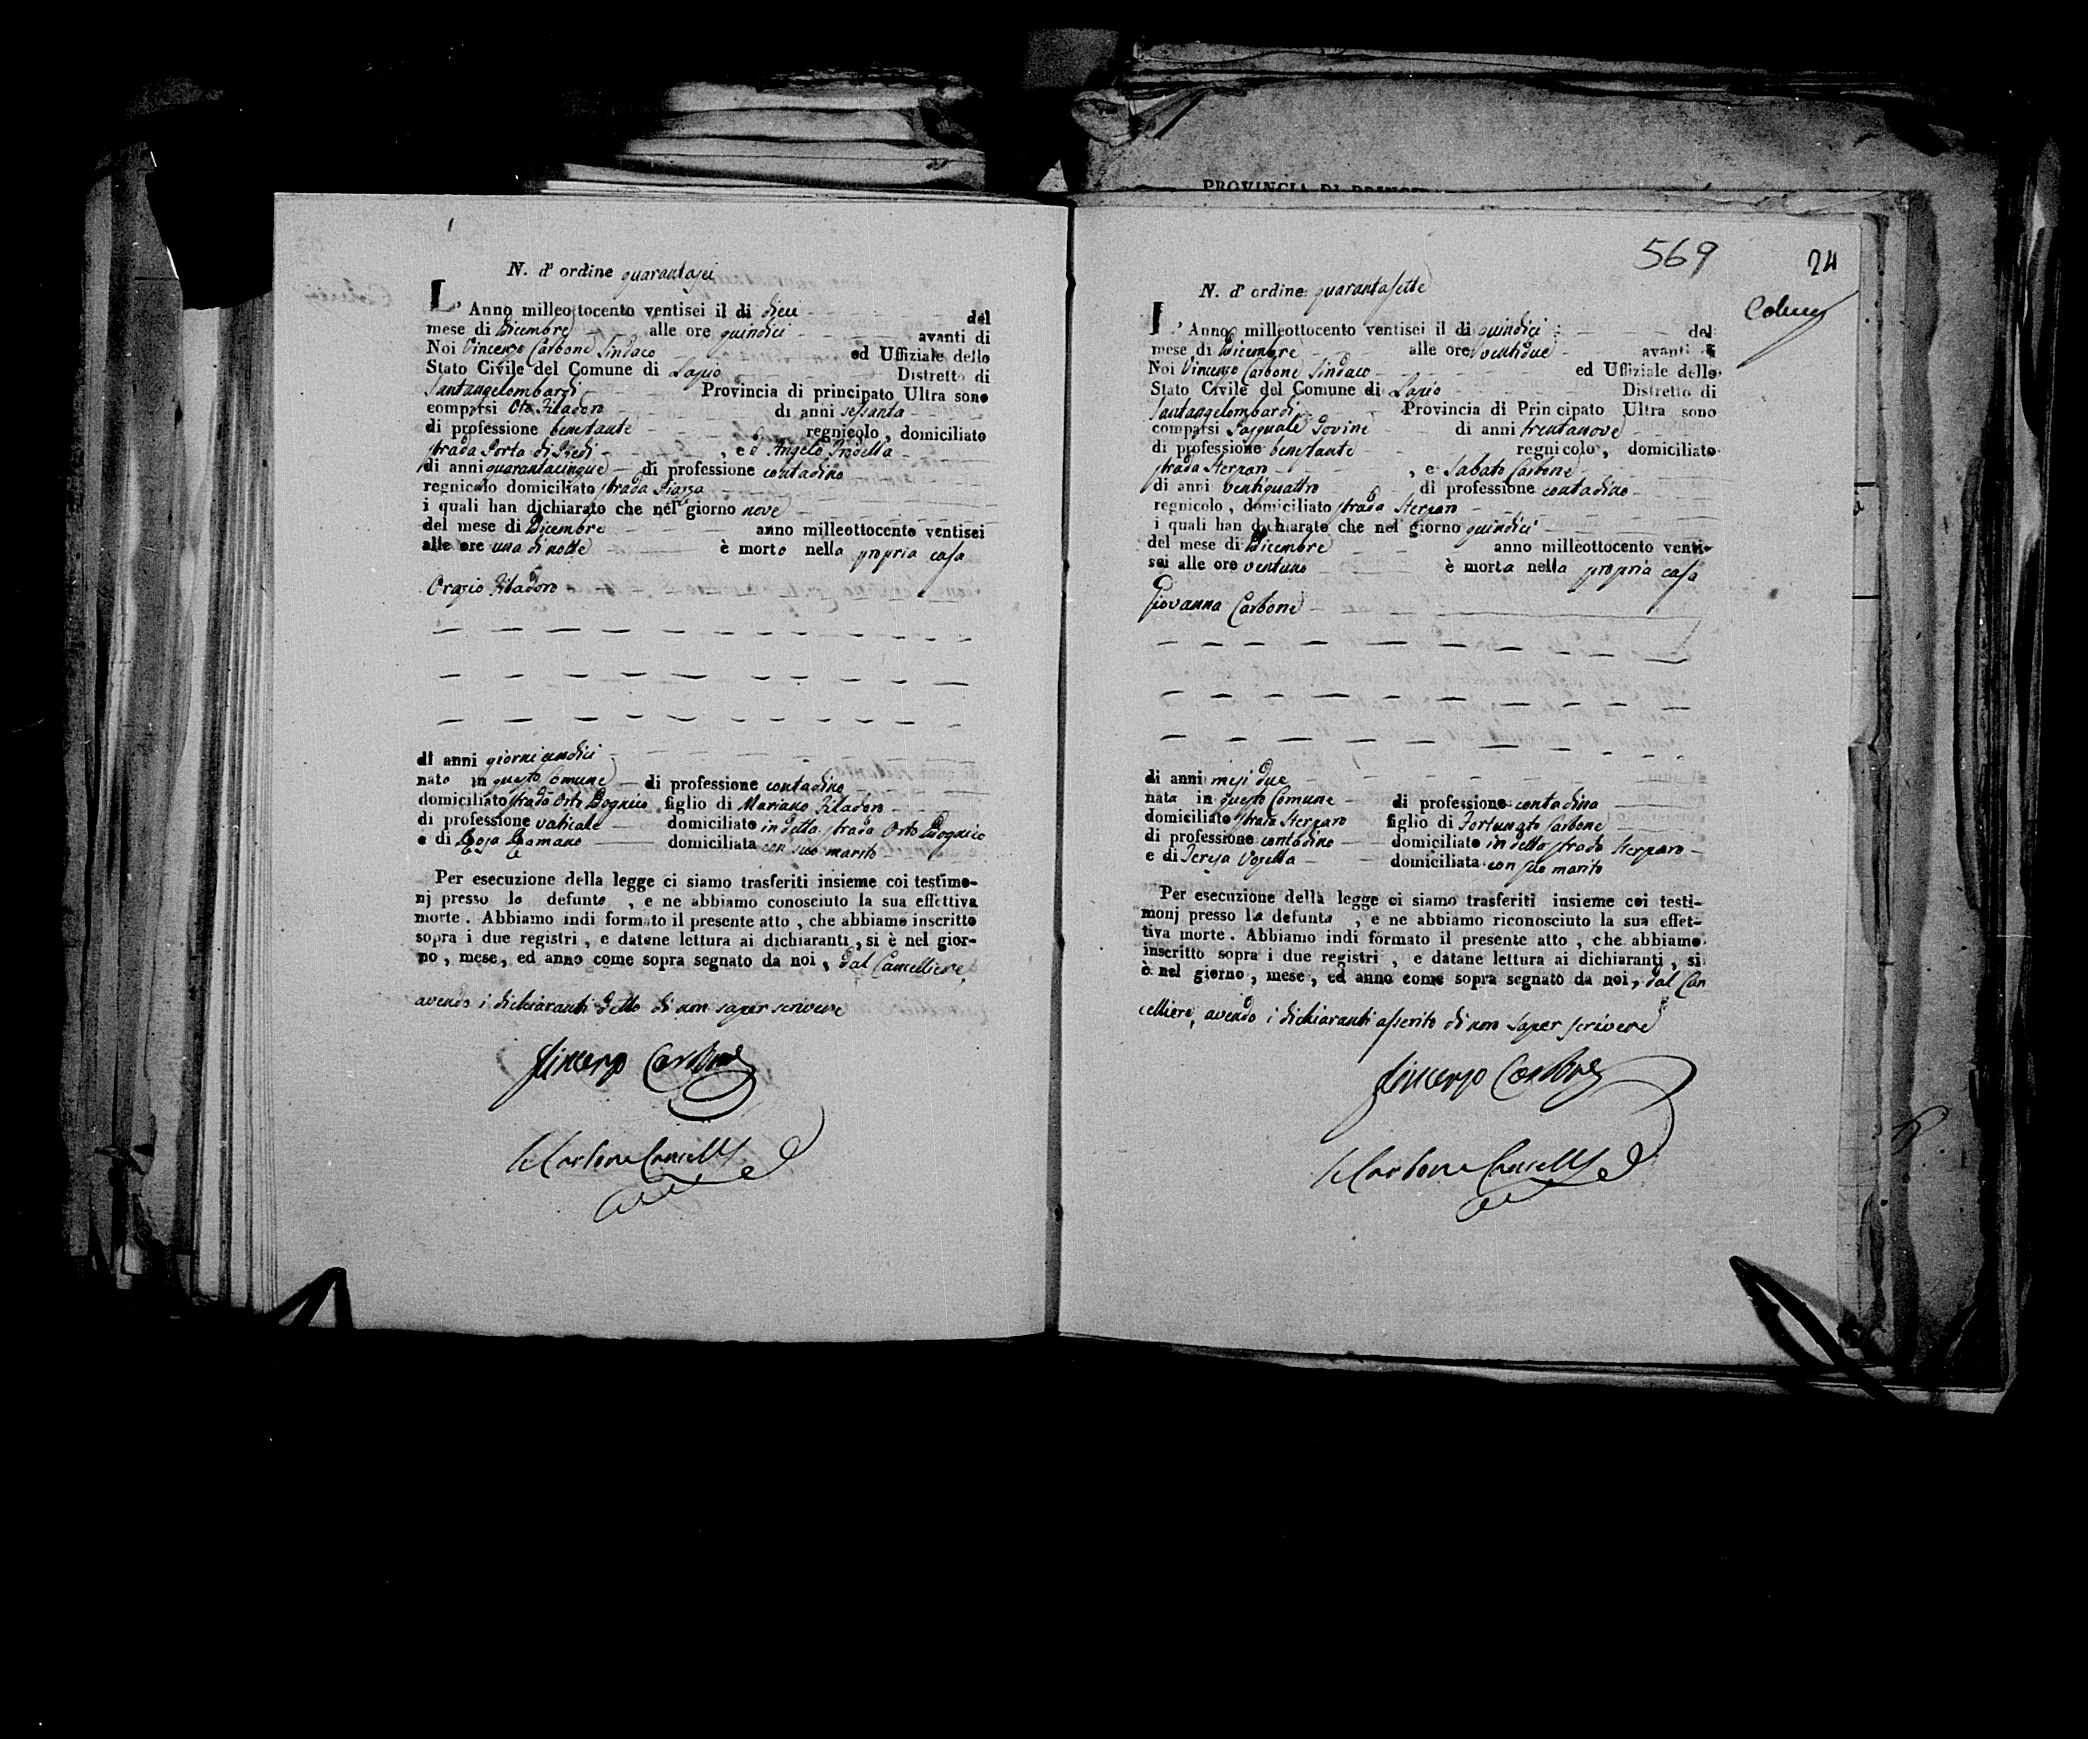 PROVINCIA DI PRINCIP
N. d' ordine quarantasei
L' Anno milleottocento ventisei il di dieci del
mese di Dicembre alle ore quindici avanti di
Noi Vincenzo Carbone Sindaco ed Uffiziale dello
Stato Civile del Comune di Lapio Distretto di
Santangelombardi Provincia di principato Ultra sono
comparsi Filadoro di anni sessanta
di professione benestante regnicolo, domiciliato
strada Porta di Piedi, e d'Angelo
di anni quarantacinque di professione contadino
regnicolo domiciliato strada Piazza
i quali han dichiarato che nel giorno nove
del mese di Dicembre anno milleottocento ventisei
alle ore una di notte è morto nella propria casa
Orazio Filadoro
di anni giorni undici
nato in questo Comune di professione contadino
domiciliato strada Orto figlio di Mariano Filadoro
di professione vaticale domiciliato in detta strada Orto
e di Rosa Romano domiciliata con suo marito
Per esecuzione della legge ci siamo trasferiti insieme coi testimo-
nj presso lo defunto, e ne abbiamo conosciuto la sua effettiva
morte. Abbiamo indi formato il presente atto, che abbiamo inscritto
sopra i due registri, e datone lettura ai dichiaranti, si è nel gior-
no, mese, ed anno come sopra segnato da noi, dal Cancelliere,
avendo i dichiaranti detto di non saper scrivere
Vincenzo Carbone
Carbone Cancell
569
24
N. d' ordine quarantasette
L' Anno milleottocento ventisei il di quindici del
mese di Dicembre alle ore ventidue avanti di
Noi Vincenzo Carbone Sindaco ed Uffiziale dello
Stato Civile del Comune di Lapio Distretto di
Santangelombardi Provincia di Principato Ultra sono
comparsi Pasquale Iovine di anni trentanove
di professione benestante regnicolo, domiciliato
strada Sterparo, e Sabato Carbone
di anni ventiquattro di professione contadino
regnicolo, domiciliato strada Sterparo
i quali han dichiarato che nel giorno quindici
del mese di Dicembre anno milleottocento venti-
sei alle ore ventuno è morta nella propria casa
Giovanna Carbone
di anni mesi due
nata in questo Comune di professione contadina
domiciliato strada Sterparo figlio di Fortunato Carbone
di professione contadino domiciliato in detta strada Sterparo
e di Teresa domiciliata con suo marito
Per esecuzione della legge ci siamo trasferiti insieme coi testi-
monj presso la defunta, e ne abbiamo riconosciuto la sua effet-
tiva morte. Abbiamo indi formato il presente atto, che abbiamo
inscritto sopra i due registri, e datane lettura ai dichiaranti, si
è nel giorno, mese, ed anno come sopra segnato da noi, dal Can
celliere, avendo i dichiaranti asserito di non saper scrivere
Vincenzo Carbone
Carbone Cancell